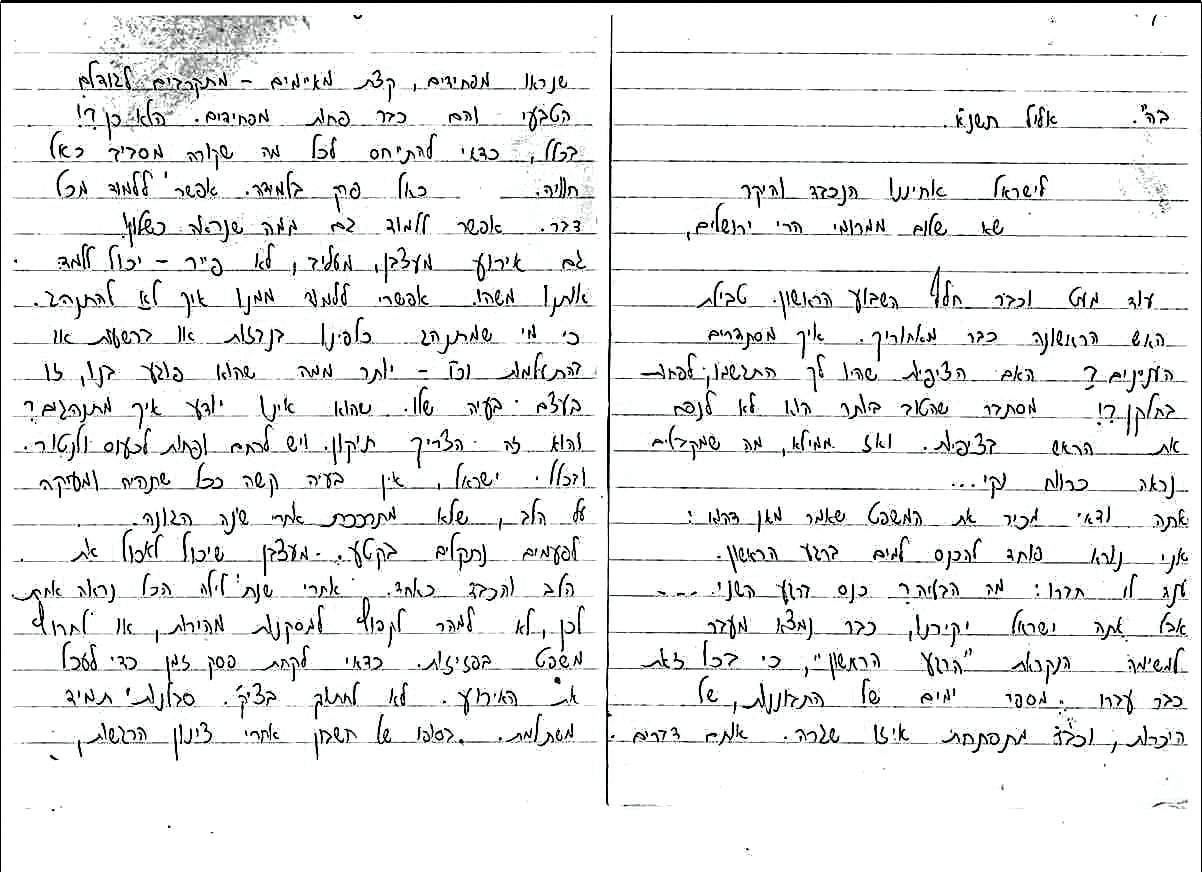 בה". אלול תשנ"א.
לישראל אחיננו הנכבד והיקר
שא שלום ממרומי הרי ירושלים,
עוד מעט וכבר חלף השבוע הראשון. טבילת
האש הראשונה כבר מאחוריך. איך מסתדרים
הענינים? האם הציפיות שהיו לך התגשמו, לפחות
בחלקן?! מסתבר שהטוב ביותר הוא לא לנסם
את הראש בציפיות. ואז ממילא, מה שמקבלים
נראה כרווח נקי...
אתה ודאי מכיר את המשפט שאמר מאן דהוא:
אני נורא פוחד להכנס למים ברגע הראשון.
ענה לו חברו: מה הבעיה? כנס ברגע השני....
אבל אתה ישראל יקירנו, כבר נמצא מעבר
למשימה הנקראת "הרגע הראשון", כי בכל זאת
כבר עברו מספר ימים של התבוננות, של
היכרות, וכבר מתפתחת איזו שגרה. אותם דברים
שנראו מפחידים, קצת מאיימים - מתקרבים לגודלם
הטבעי והם כבר פחות מפחידים. הלא כן?!
בכלל, כדאי להתייחס לכל מה שקורה מסביב כאל
חוויה. כאל פרק בלמידה. אפשר ללמוד מכל
דבר. אפשר ללמוד גם ממה שנראה כשלון.
גם אירוע מעצבן, מעליב, לא פייר - יכול ללמד
אותנו משהו. אפשרי ללמוד ממנו איך לא להתנהג.
כי מי שמתנהג כלפינו בגסות או ברשעות או
בהתעלמות וכו' - יותר ממה שהוא פוגע בנו, זו
בעצם בעיה שלו. שהוא אינו יודע איך מתנהגים?
והוא זה הצריך תיקון. ויש לרחם ופחות לכעוס ולנטור.
ובכלל ישראל, אין בעיה קשה ככל שתהיה ומעיקה
על הלב, שלא מתרככת אחרי שינה הגונה.
לפעמים נתקלים בקטע מעצבן שיכול לאכול את
הלב והכבד כאחד. אחרי שנת לילה הכל נראה אחרת
לכן, לא למהר לקפוץ למסקנות מהירות, או לחרוץ
משפט בפזיזות. כדאי לקחת פסק זמן כדי לעכל
את האירוע. לא לחתוך בציק. סבלנות תמיד
משתלמת. בסופו של חשבון אחרי צינון הרגשות,